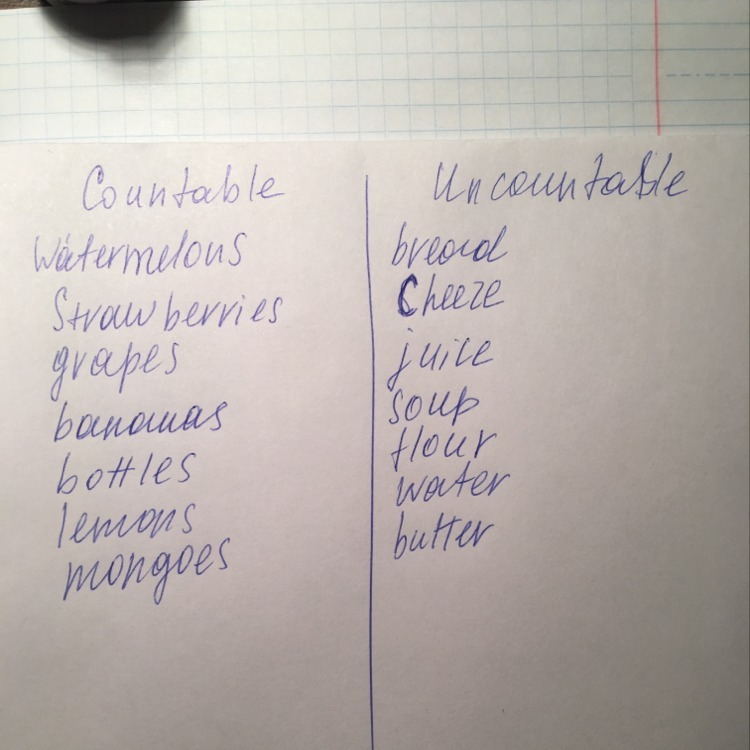 Countable
Watermelons
Strawberries
grapes
bananas
bottles
lemons
mangoes
Uncountable
bread
Cheeze
juice
soup
flour
water
butter